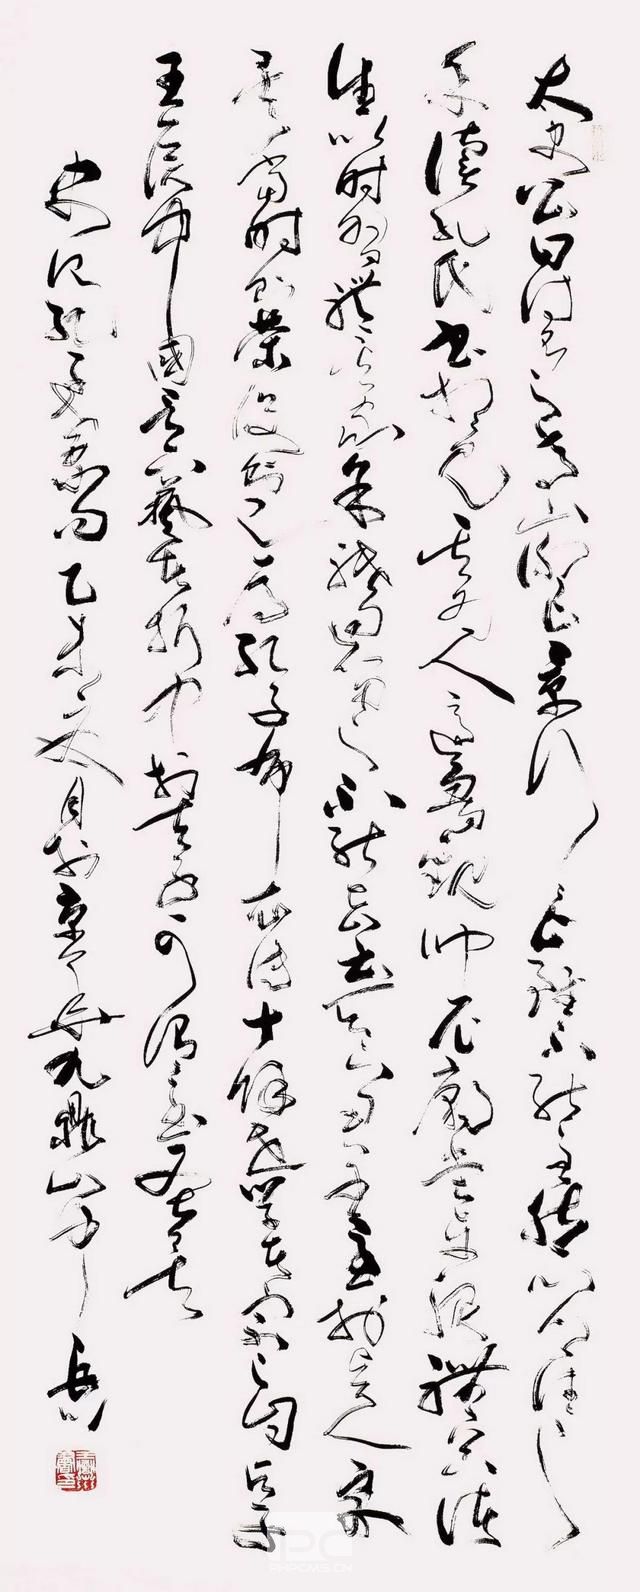 太史公曰詩有之高山仰止景行行止雖不能至然心鄉往之
余讀孔氏書想見其為人適魯觀仲尼廟堂車服禮器諸
生以時習禮其家余祗迴留之不能去云天下君王至於賢人眾
矣當時則榮沒則已焉孔子布衣傳十餘世學者宗之自天子
王侯中國言六藝者折中於夫子可謂至聖矣
史記孔子世家句乙未夏月於京華九鼎山房岳川
PHPCMS.CN